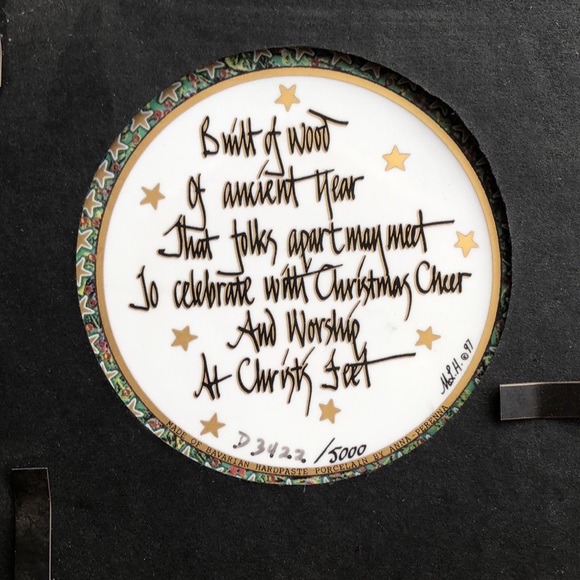 Built of wood
Of ancient year
That folks apart may meet
To celebrate with Christmas Cheer
And Worship
At Christ's Feet
M.L.H. © 97
D3422 /5000
MADE OF BAVARIAN HARDPASTE PORCELAIN BY ANNA-PERENNA